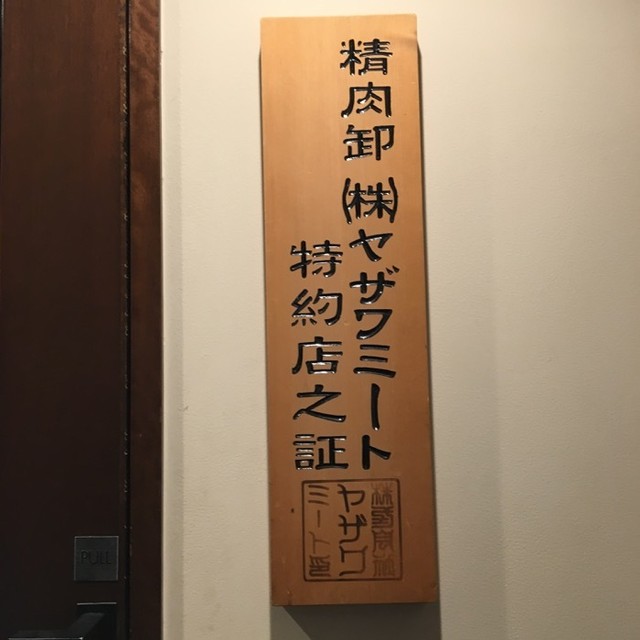 精肉卸 ㈱ヤザワミート
特約店之証
株式会社
ヤザワ
ミート印
PULL